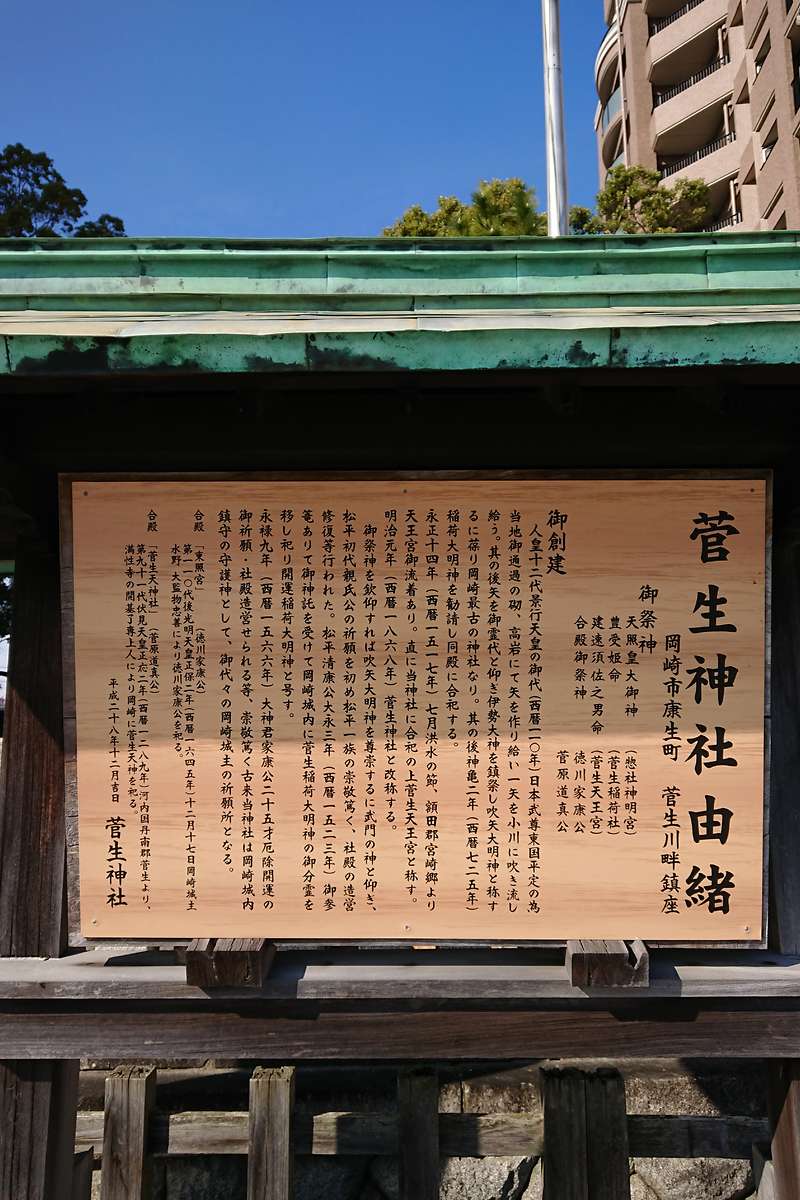 菅生神社由緒
岡崎市康生町　菅生川畔鎮座
御祭神
天照皇大御神　（惣社神明宮）
豊受姫命　（菅生稲荷社）
建速須佐之男命　（菅生天王宮）
合殿御祭神　徳川家康公
菅原道真公
御創建
人皇十二代景行天皇の御代（西暦一一〇年）日本武尊東国平定の為
当地御通過の砌、高岩にて矢を作り給い一矢を小川に吹き流し
給う。其の後矢を御霊代と仰ぎ伊勢大神を鎮祭し吹矢大明神と称す
るに葆り岡崎最古の神社なり。其の後神亀二年（西暦七二五年）
稲荷大明神を勧請し同殿に合祀する。
永正十四年（西暦一五一七年）七月洪水の節、額田郡宮崎郷より
天王宮御流着あり。直に当神社に合祀の上菅生天王宮と称す。
明治元年（西暦一八六八年）菅生神社と改称する。
御祭神を欽仰すれば吹矢大明神を尊崇するに武門の神と仰ぎ、
松平初代親氏公の祈願を初め松平一族の崇敬篤く、社殿の造営
修復等行われた。松平清康公大永三年（西暦一五二三年）御参
篭ありて御神託を受けて岡崎城内に菅生稲荷大明神の御分霊を
移し祀り開運稲荷大明神と号す。
永禄九年（西暦一五六六年）大神君家康公二十五才厄除開運の
御祈願・社殿造営せられる等、崇敬篤く古来当神社は岡崎城内
鎮守の守護神として、御代々の岡崎城主の祈願所となる。
合殿　「東照宮」　（徳川家康公）
第一一〇代後光明天皇正保二年（西暦一六四五年）十二月十七日岡崎城主
水野　大監物忠善により徳川家康公を祀る。
合殿　「菅生天神社」（菅原道真公）
第九十一代伏見天皇正応二年（西暦一二八九年）河内国丹南郡菅生より、
満性寺の開基了専上人により岡崎に菅生天神を祀る。
平成二十八年十二月吉日　菅生神社